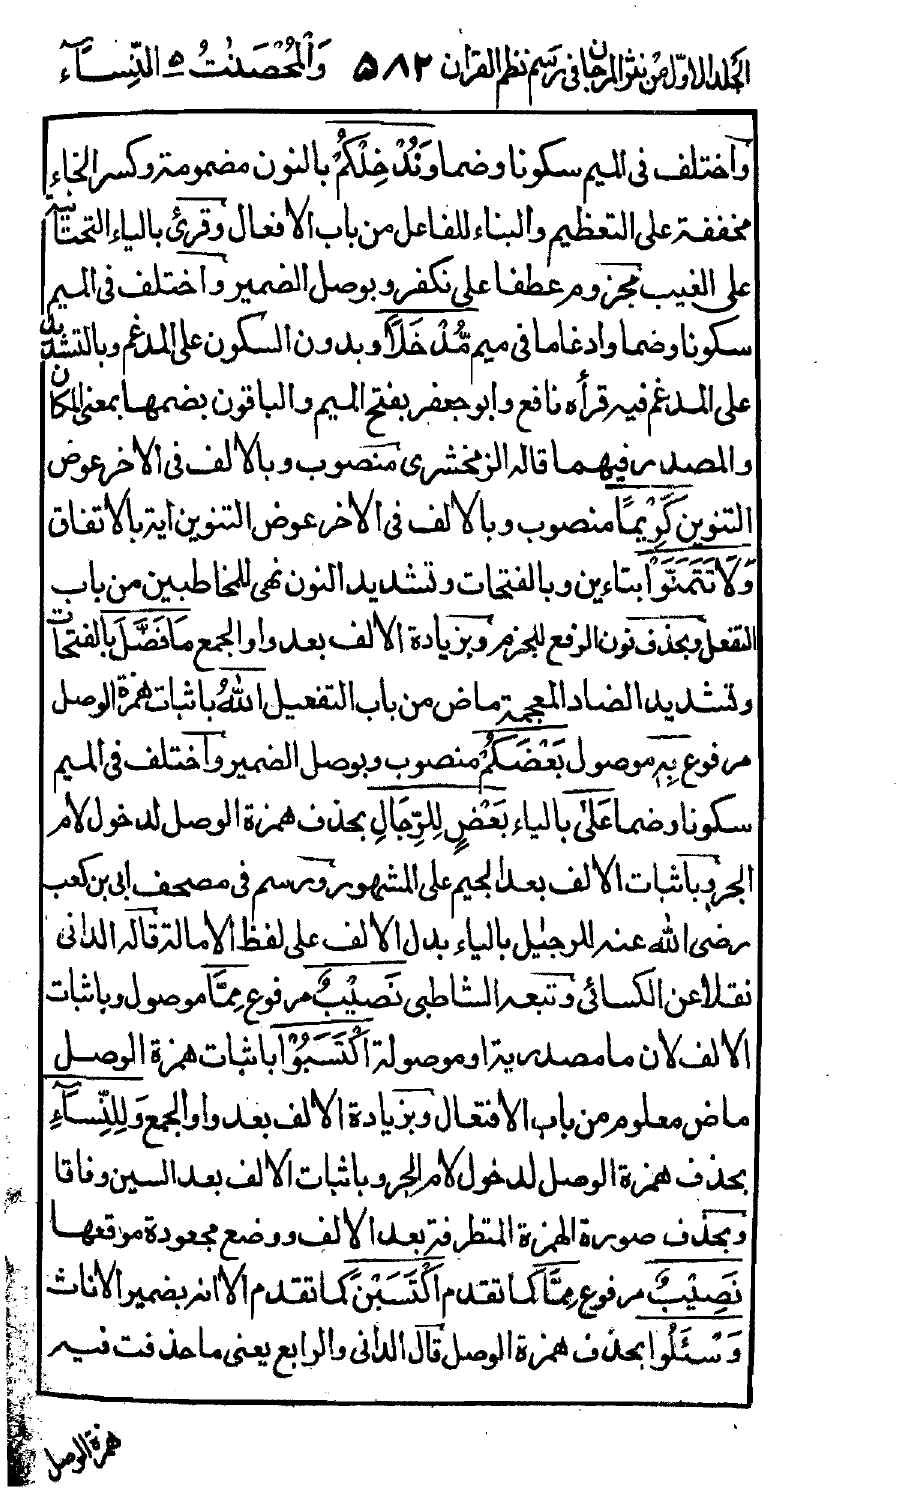 الجلد الاول من نثر المرجان فى رسم نظم القران ٥٨٢ وَالْمُحْصَنٰتُ ٥ النِّسَآء
واختلف فى الميم سكونا وضما وَنُدْخِلْكُمْ بالنون مضمومة وكسر الخاء
مخففة على التعظيم والبناء للفاعل من باب الافعال وقرئ بالياء التحتانية
على الغيب مجزوم عطفا على نكفر وبوصل الضمير واختلف فى الميم
سكونا وضما وادغاما فى ميم مُّدْخَلًا وبدون السكون على المدغم وبالتشديد
على المدغم فيه قرأه نافع وابو جعفر بفتح الميم والباقون بضمها بمعنى المكان
والمصدر فيهما قاله الزمخشرى منصوب وبالالف فى الاخر عوض
التنوين كَرِيْمًا منصوب وبالالف فى الاخر عوض التنوين اية بالاتفاق
وَلَا تَتَمَنَّوْا بتاءين وبالفتحات وتشديد النون نهى للمخاطبين من باب
التفعل وبحذف نون الرفع للجزم وبزيادة الالف بعد واو الجمع مَا فَضَّلَ بالفتحات
وتشديد الضاد المعجمة ماض من باب التفعيل اللهُ باثبات همزة الوصل
مرفوع بِهٖ موصول بَعْضَكُمْ منصوب وبوصل الضمير واختلف فى الميم
سكونا وضما عَلٰى بالياء بَعْضٍ لِلرِّجَالِ بحذف همزة الوصل لدخول لام
الجر وباثبات الالف بعد الجيم على المشهور ورسم فى مصحف ابى بن كعب
رضى الله عنه للرجيل بالياء بدل الالف على لفظ الامالة قاله الدانى
نقلا عن الكسائى وتبعه الشاطبى نَصِيْبٌ مرفوع مِمَّا موصول وباثبات
الالف لان ما مصدرية او موصولة اكْتَسَبُوْا باثبات همزة الوصل
ماض معلوم من باب الافتعال وبزيادة الالف بعد واو الجمع وَلِلنِّسَآءِ
بحذف همزة الوصل لدخول لام الجر وباثبات الالف بعد السين وفاقا
وبحذف صورة الهمزة المتطرفة بعد الالف ووضع مجعودة موقعها
نَصِيْبٌ مرفوع مِمَّا كما تقدم اكْتَسَبْنَ كما تقدم الا انه بضمير الاناث
وَسْئَلُوا بحذف همزة الوصل قال الدانى والرابع يعنى ما حذفت فيه
همزة الوصل